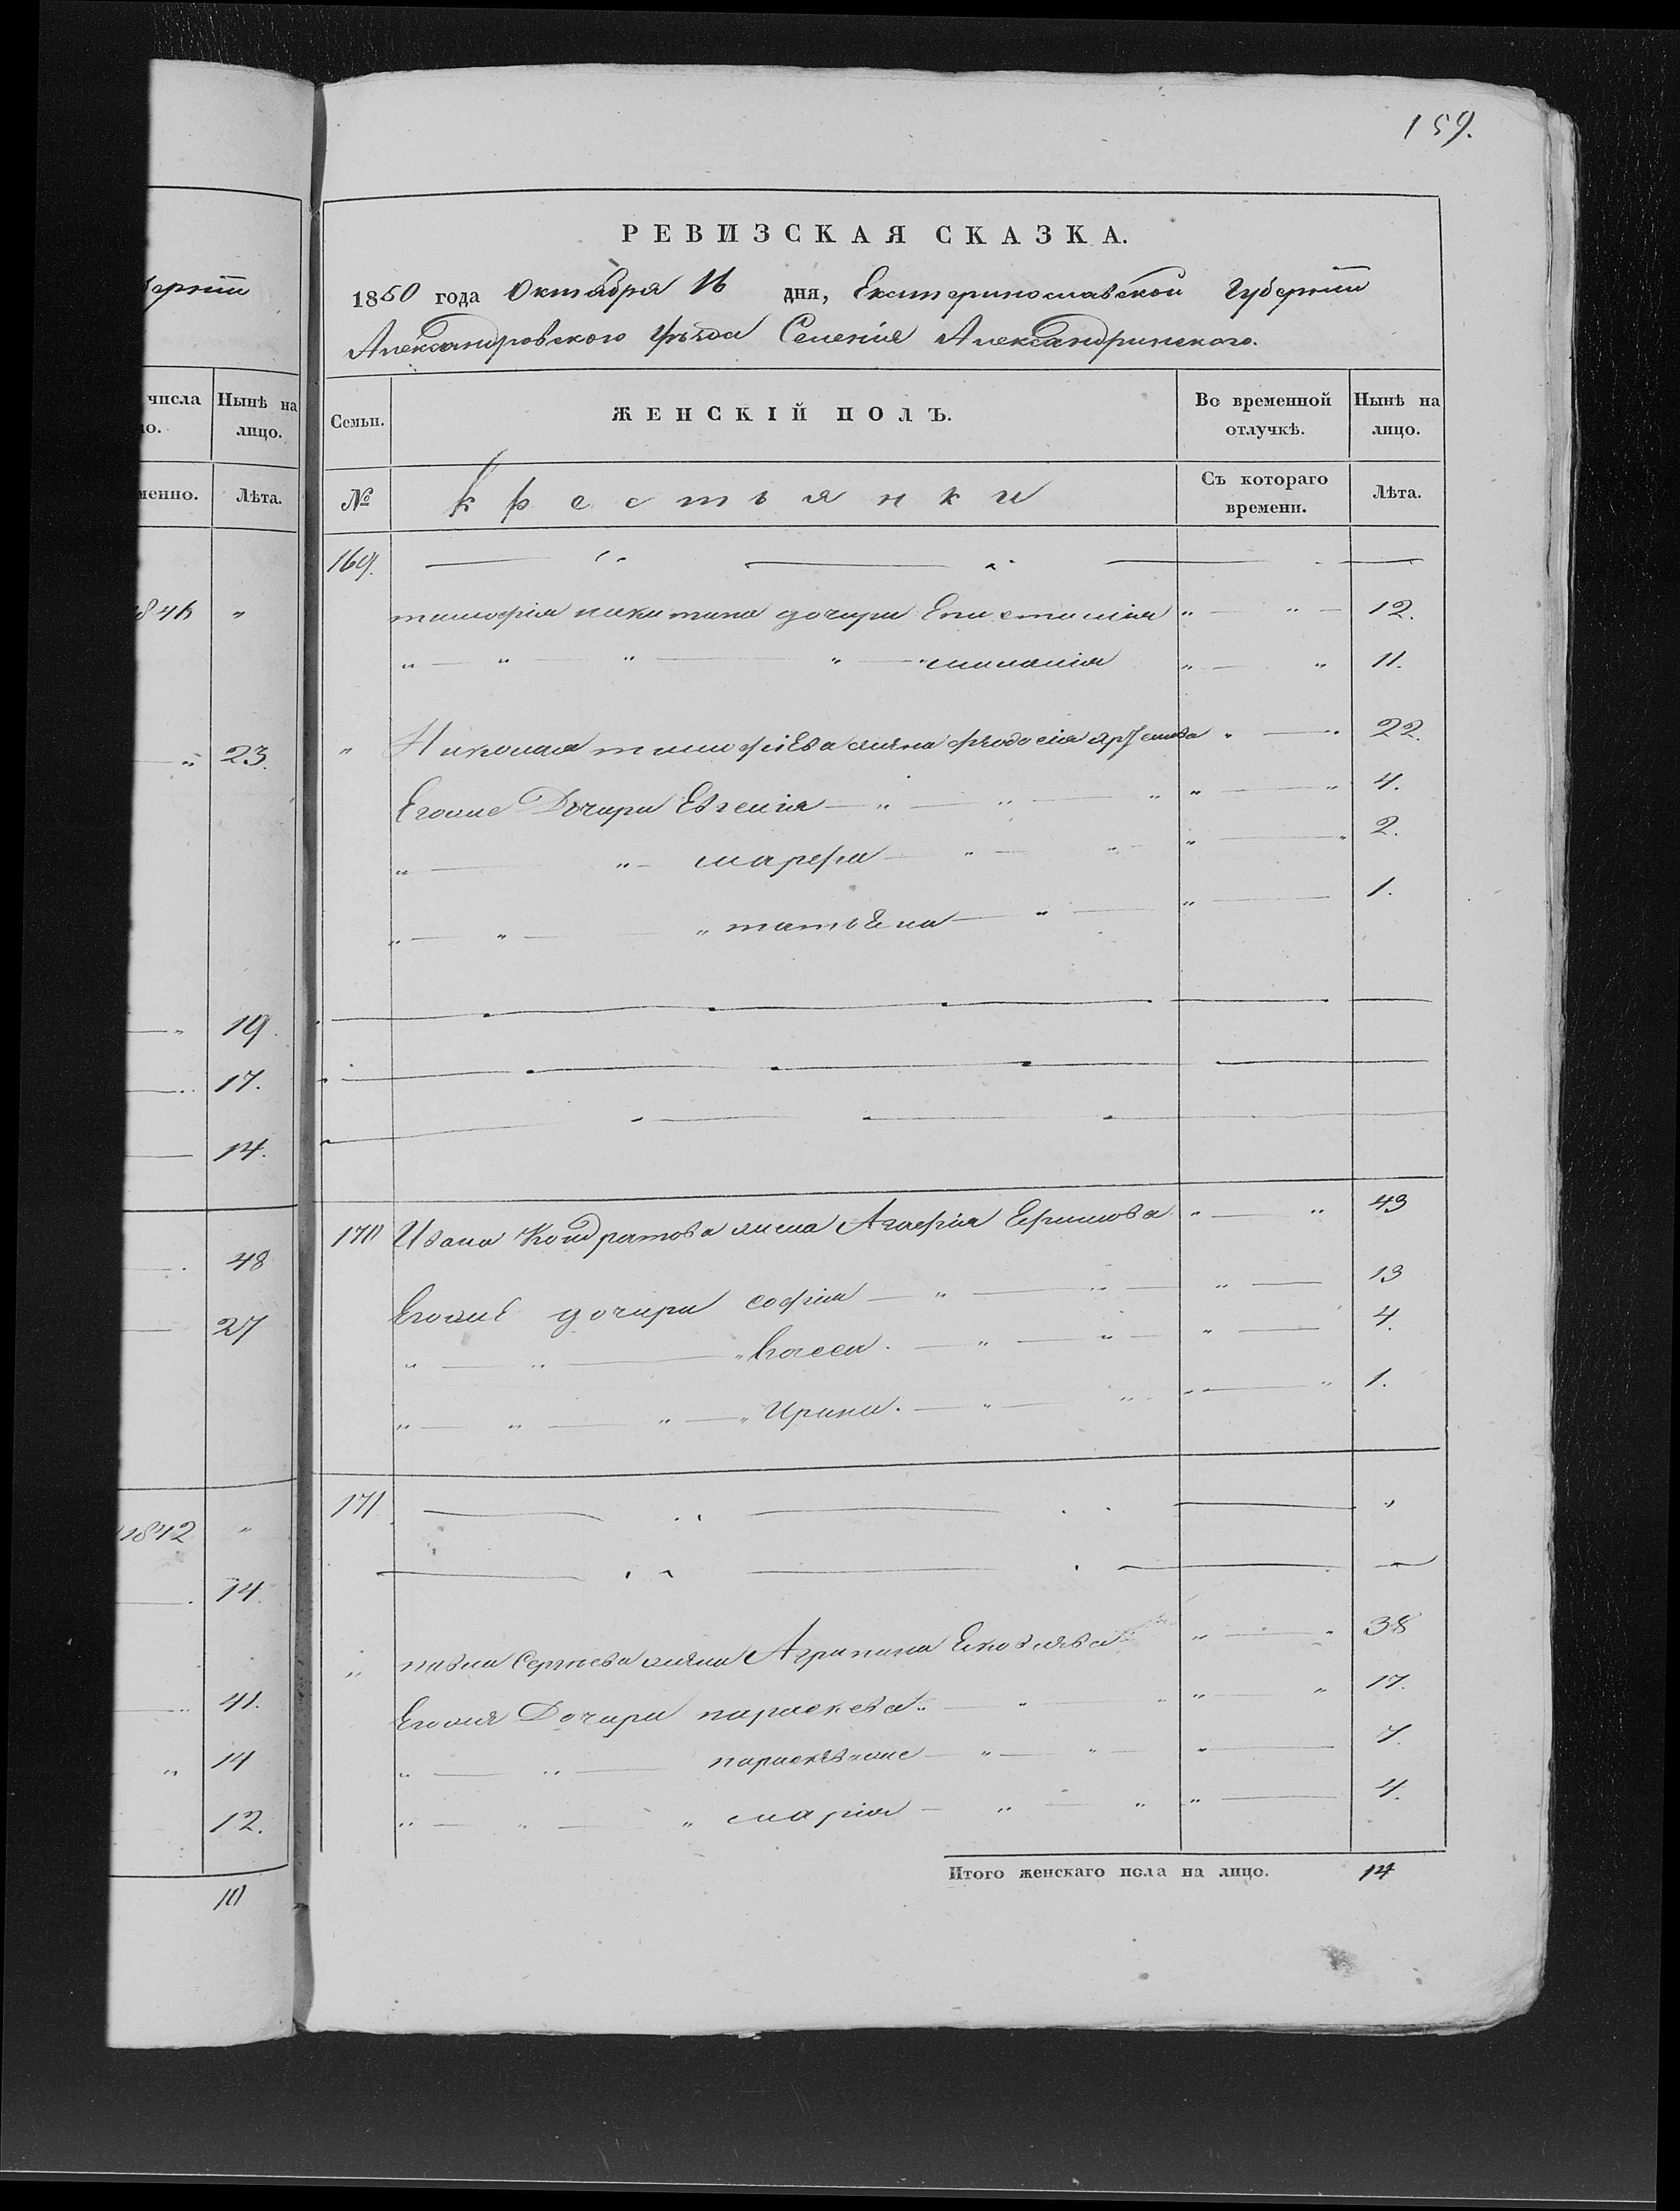 159.
РЕВИЗСКАЯ СКАЗКА.
1850 года Октября 16 дня, Екатеринославской Губернии
Александровского уѣзда Селенія Александринского.
Семьи. ЖЕНСКІЙ ПОЛЪ. Во временной отлучкѣ. Нынѣ на лицо.
№ крестьянки Съ котораго времени. Лѣта.
169.
тимофія никитина дочери Епистимія " " 12.
" " " " " миланія " " 11.
" Николая тимофіЕва жена фѣодосія " " 22.
Егоже Дочери Евгенія " " " " " 4.
" " марфа " " " " 2.
" " " татьЕна " " 1.
170 Ивана Кондратова жена Агафія Ефимова " " 43
ЕгожЕ дочери софія " " " 13
" " " Васса. " " " 4.
" " " " Ирина. " " " " 1.
171 "
" павла Сергѣева жена Аграпина Ековлева " " 38
Егожя Дочери параскева " " " " " 17.
" " параскѣв " " " 7.
" " " марія " " " 4.
Итого женскаго пола на лицо. 14
числа Нынѣ на лицо.
Лѣта.
"
" 23.
" 19.
17.
14.
48
27
1842 "
14.
41.
" 14
12.
10